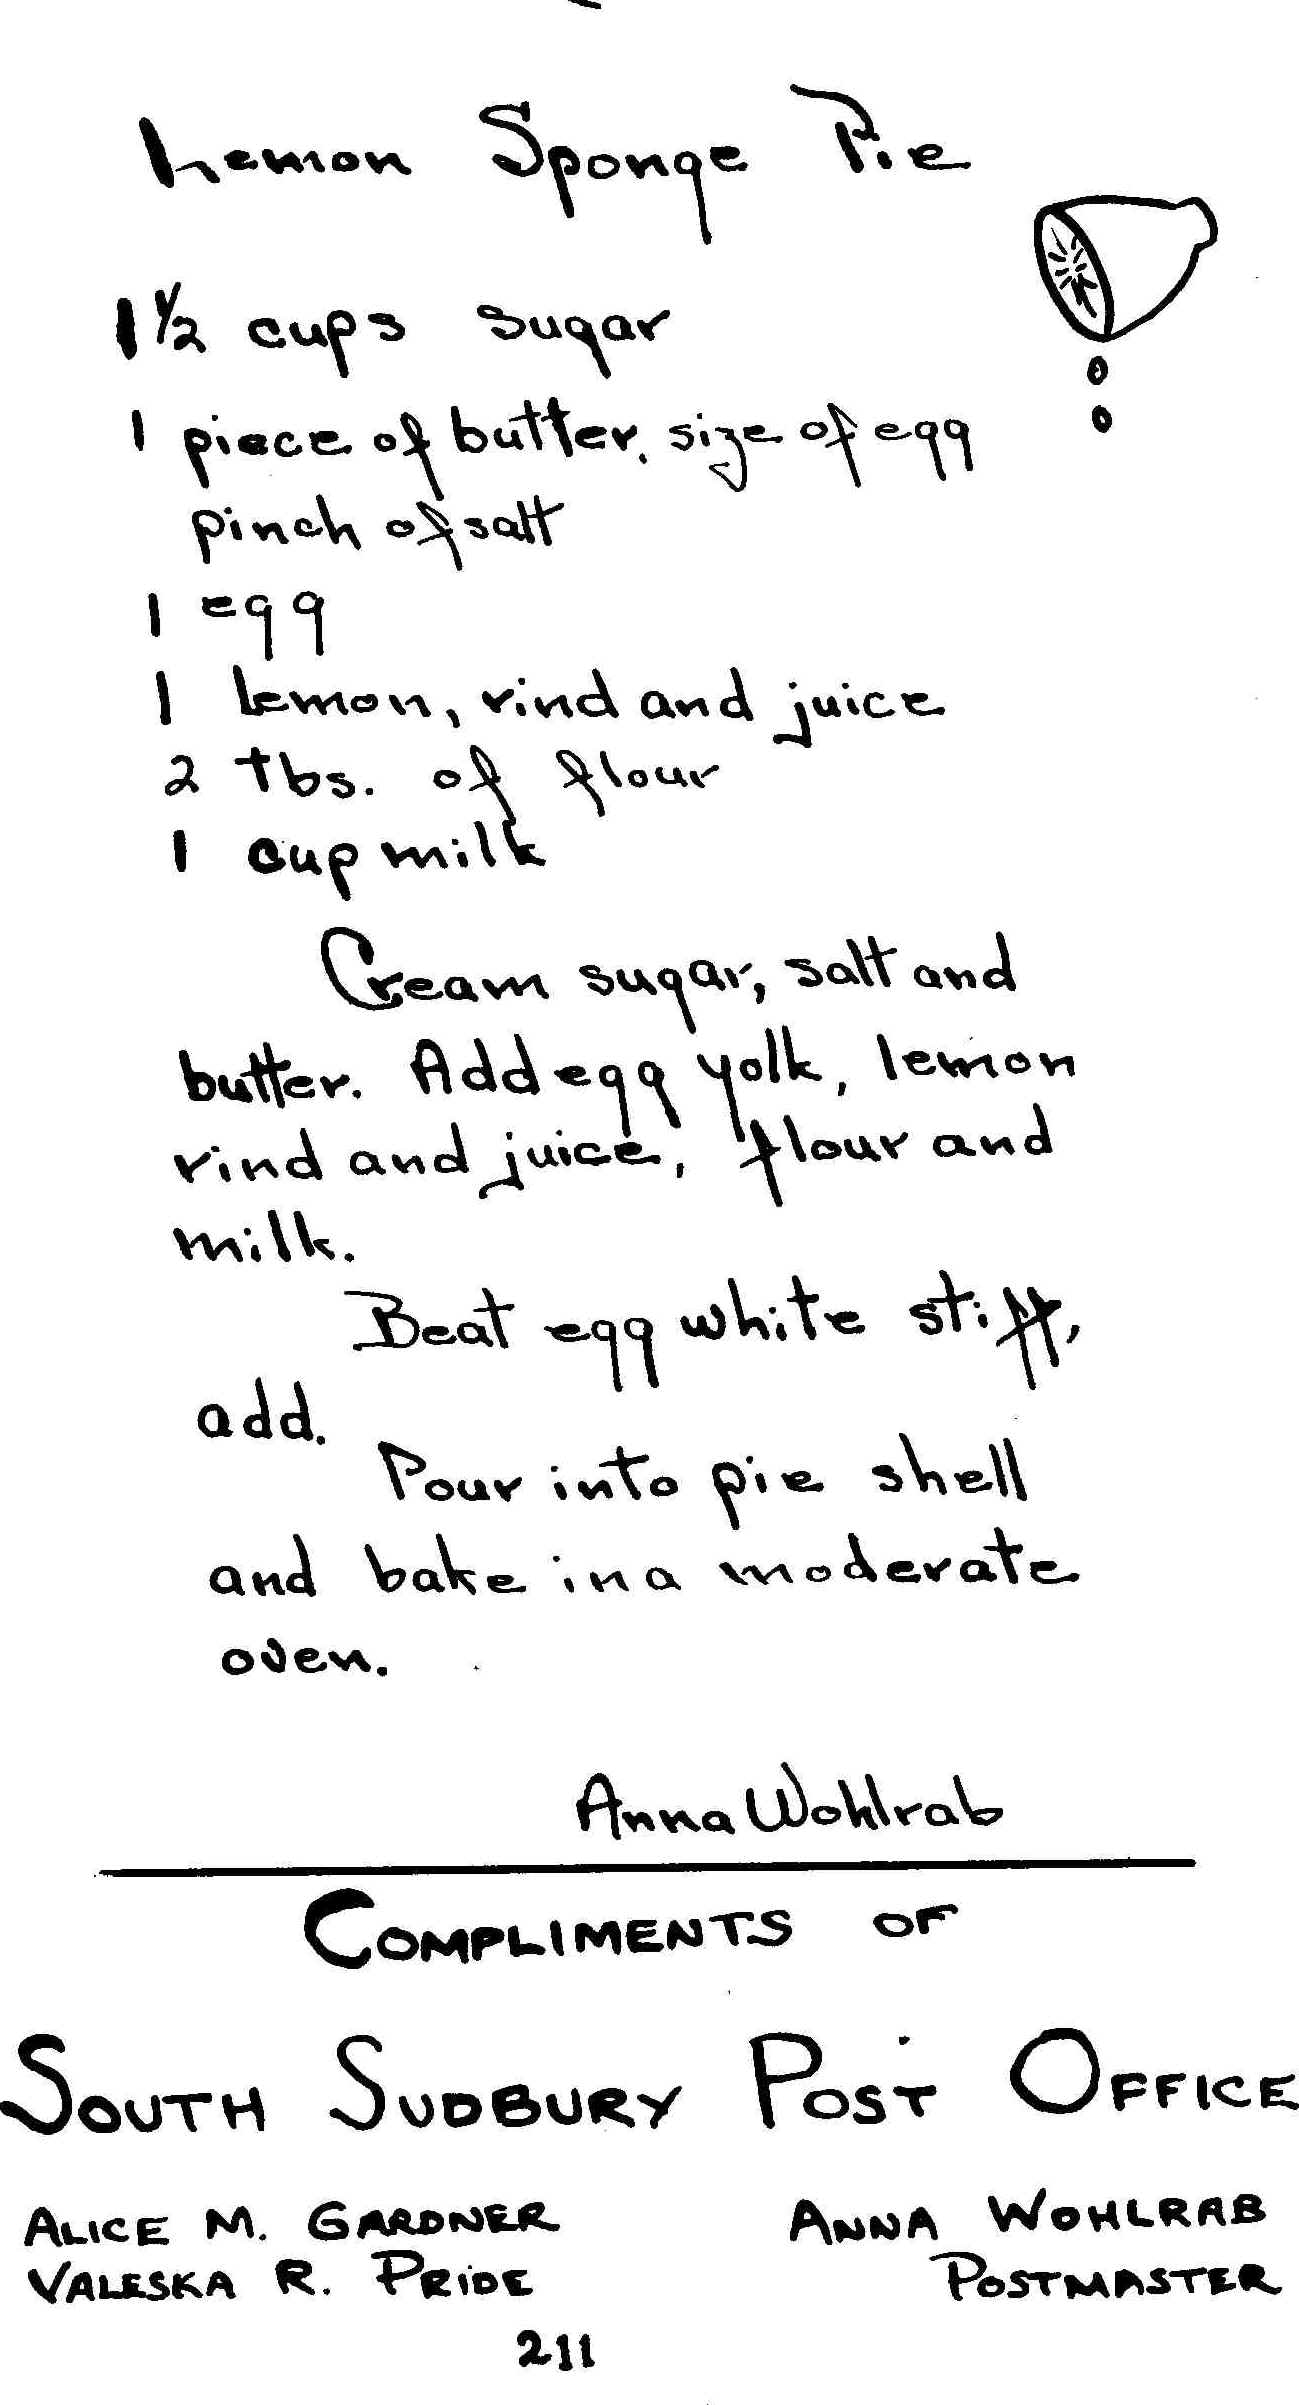 Lemon Sponge Pie
1 1/2 cups sugar
1 piece of butter, size of egg
pinch of salt
1 egg
1 lemon, rind and juice
2 tbs. of flour
1 cup milk
Cream sugar, salt and
butter. Add egg yolk, lemon
rind and juice, flour and
milk.
Beat egg white stiff,
add.
Pour into pie shell
and bake in a moderate
oven.
Anna Wohlrab
COMPLIMENTS OF
SOUTH SUDBURY POST OFFICE
ALICE M. GARDNER ANNA WOHLRAB
VALESKA R. PRIDE POSTMASTER
211